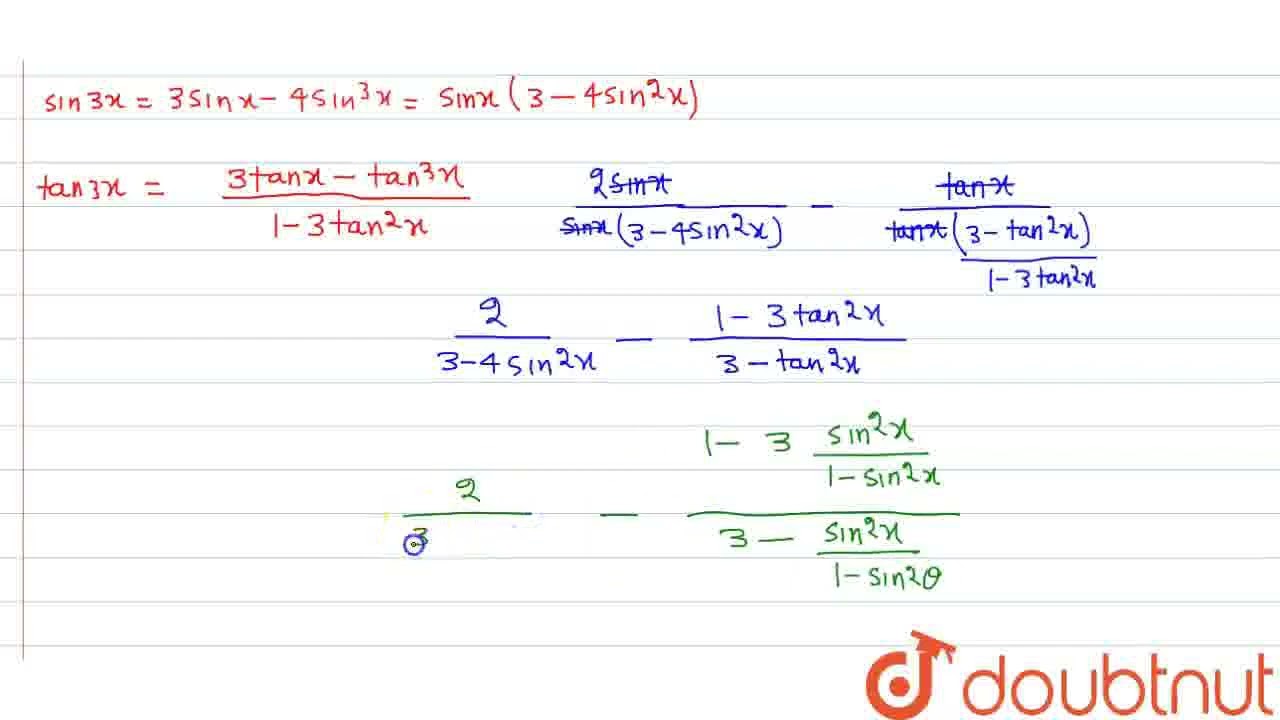 sin3x = 3sinx - 4sin³x = sinx (3 - 4sin²x)
tan3x = \frac{3tanx - tan³x}{1 - 3tan²x} \frac{2sinx}{sinx(3 - 4sin²x)} - \frac{tanx}{tanx\frac{(3 - tan²x)}{1 - 3tan²x}}
\frac{2}{3 - 4sin²x} - \frac{1 - 3tan²x}{3 - tan²x}
\frac{2}{3} - \frac{1 - 3\frac{sin²x}{1 - sin²x}}{3 - \frac{sin²x}{1 - sin²θ}}
doubtnut